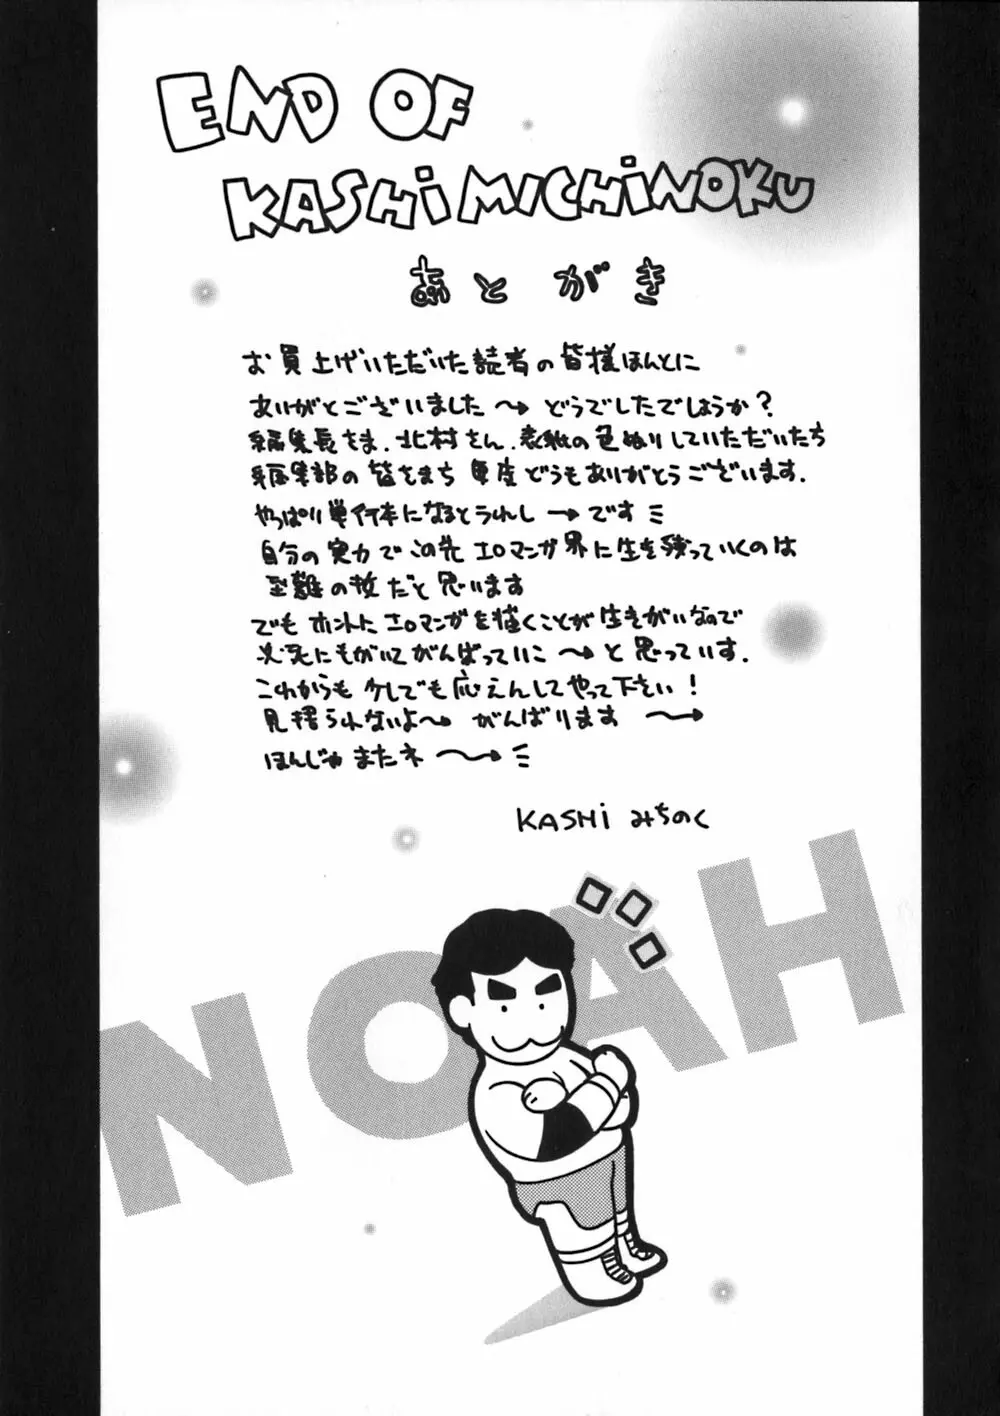 END OF
KASHIMICHINOKU
あとがき
お買上げいただいた読者の皆様ほんとに
ありがとございました〜→どうでしたでしょうか?
編集長さま.北村さん.表紙の色ぬりしていただいたち
編集部の皆さまち 毎度どうもありがとうございます.
やっぱり単行本になるとうれし〜→です
自分の実力でこの先エロマンガ界に生き残っていくのは
至難の技だと思います
でもホントにエロマンガを描くことが生きがいなので
必死にもがいてがんばっていこ〜→と思っています.
これからも少しでも応えんしてやって下さい!
見捨られないよ〜がんばります〜→
ほんじゃまたネ〜→
KASHIみちのく
NOAH